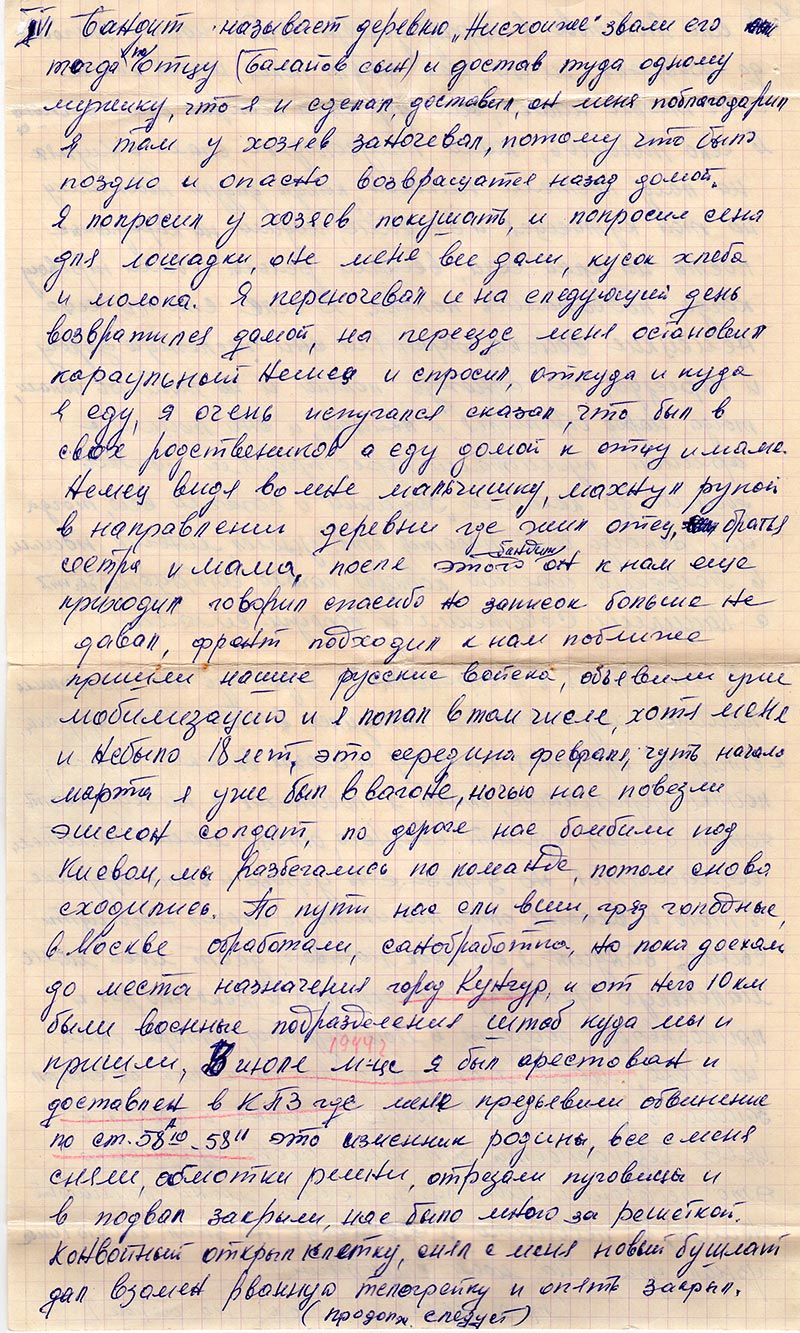 III Бандит называет деревню „Нисхоиже" звали его
тогда по отцу (Балайов сын) и достав туда одному
мужику, что я и сделал, доставил, он меня поблагодарил
я там у хозяев заночевал, потому что было
поздно и опасно возвращатся назад домой.
Я попросил у хозяев покушать, и попросил сена
для лошадки, оне мене все дали, кусок хлеба
и молока. Я переночевал и на следующий день
возвратился дамой, на переезде меня остановил
караульный немец и спросил, откуда и куда
я еду, я очень испугался сказал, что был в
своих родственников а еду домой к отцу и маме.
Немец видя во мне мальчишку, махнул рукой
в направлении деревни где жил отец, братья
сестра и мама, после этого он бандит к нам еще
приходил говорил спасибо но записок больше не
давал, фронт подходил к нам поближе
пришли наши русские войска, объявили уже
мобилизацию и я попал в том числе, хотя мене
и небыло 18 лет, это середина февраля, чуть начало
марта я уже был в вагоне, ночью нас повезли
эшелон солдат, по дороге нас бомбили под
Киевом, мы разбегались по команде, потом снова
сходились. По пути нас ели вши, гряз голодные,
в Москве обработали, санобработка, но пока доехали
до места назначения город Кунгур, и от него 10 км
были военные подразделения штаб куда мы и
пришли, В июле м-це 1944г я был орестован и
доставлен в КПЗ где мене предьевили обвинение
по ст. 58А10-58 11 это изменник родины, все с меня
сняли, обмотки ремни, отрезали пуговицы и
в подвал закрыли, нас было много за решеткой.
Конвойный открыл клетку, снял с меня новый бушлат
дал взамен рванную телогрейку и опять закрыл.
(продолж. следует)